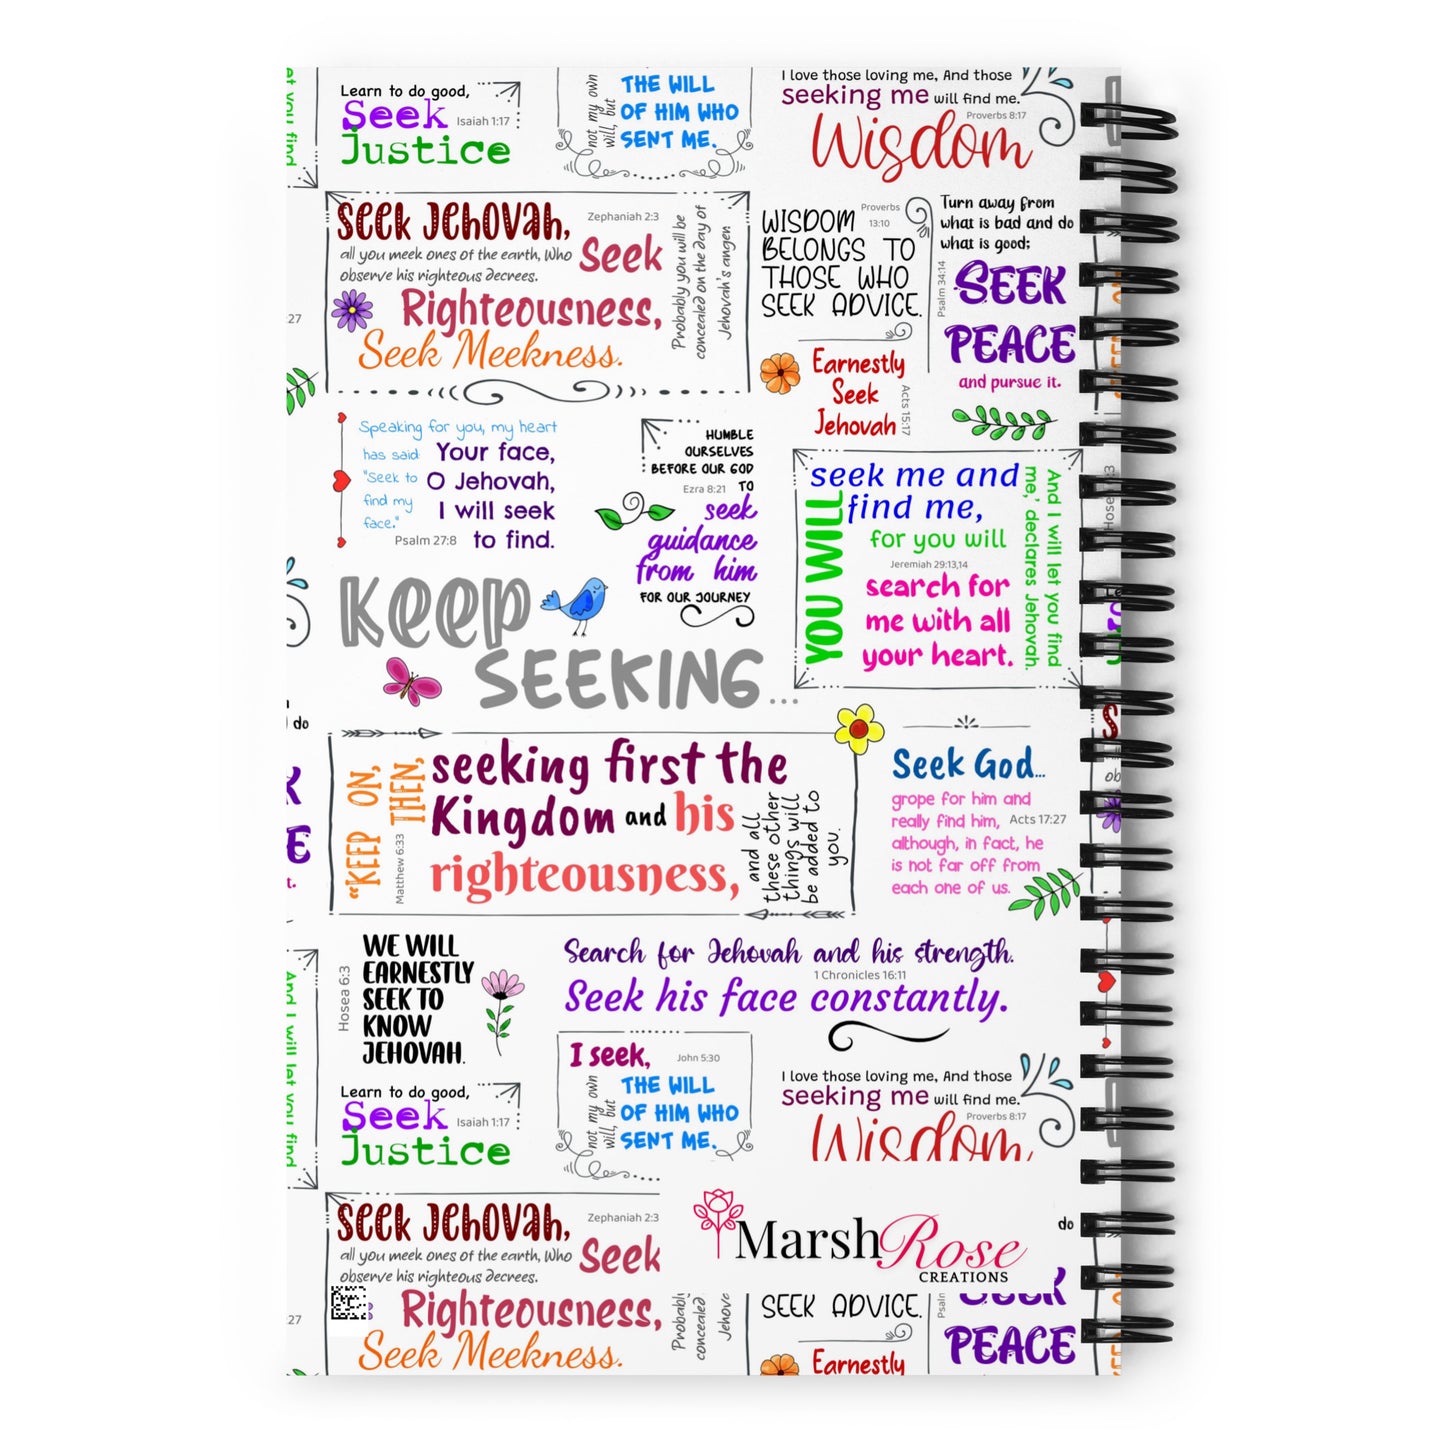 Learn to do good,
Seek
Isaiah 1:17
Justice
not my own
will, but
THE WILL
OF HIM WHO
SENT ME.
I love those loving me, And those
seeking me will find me.
Proverbs 8:17
Wisdom
And I will let you find
Seek Jehovah,
Zephaniah 2:3
all you meek ones of the earth, Who
observe his righteous decrees.
Seek
Righteousness,
Seek Meekness.
Probably you will be
concealed on the day of
Jehovah's angen
WISDOM
Proverbs
13:10
BELONGS TO
THOSE WHO
SEEK ADVICE.
Turn away from
what is bad and do
what is good;
Psalm 34:14
SEEK
PEACE
and pursue it.
27
Earnestly
Seek
Jehovah
Acts 15:17
Speaking for you, my heart
has said
"Seek to
find my
face."
Your face,
O Jehovah,
I will seek
to find.
Psalm 27:8
HUMBLE
OURSELVES
BEFORE OUR GOD
Ezra 8:21
TO
seek
guidance
from him
FOR OUR JOURNEY
YOU WILL
seek me and
find me,
for you will
Jeremiah 29:13,14
search for
me with all
your heart.
And I will let you find
me,' declares Jehovah.
KEEP
SEEKING...
do
"KEEP ON,
THEN,
Matthew 6:33
seeking first the
Kingdom and his
righteousness,
and all
these other
things will
be added to
you.
Seek God...
grope for him and
really find him,
Acts 17:27
although, in fact, he
is not far off from
each one of us.
Hosea 6:3
WE WILL
EARNESTLY
SEEK TO
KNOW
JEHOVAH.
Search for Jehovah and his strength.
1 Chronicles 16:11
Seek his face constantly.
And I will let you find
Learn to do good,
Seek
Isaiah 1:17
Justice
I seek,
John 5:30
not my own
will, but
THE WILL
OF HIM WHO
SENT ME.
I love those loving me, And those
seeking me will find me.
Proverbs 8:17
Wisdom
Seek Jehovah,
Zephaniah 2:3
all you meek ones of the earth, Who
observe his righteous decrees.
Seek
Righteousness,
Seek Meekness.
Probabl
concealed
Jehov
MarshRose
CREATIONS
do
27
SEEK ADVICE.
Psaln
SEEK
PEACE
Earnestly